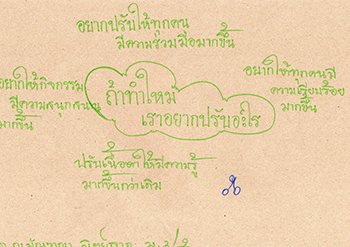 อยากปรับให้ทุกคน
มีความร่วมมือมากขึ้น
อยากให้กิจกรรม
มีความสนุกสนาน
มากขึ้น
ถ้าทำใหม่
เราอยากปรับอะไร
อยากให้ทุกคนมี
ความเรียบร้อย
มากขึ้น
ปรับเนื้อหาให้มีความรู้
มากขึ้นกว่าเดิม